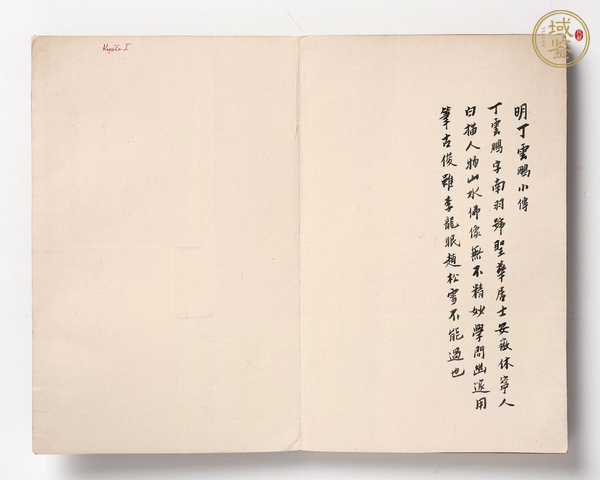 明丁雲鵬小傳
丁雲鵬字南羽號聖華居士安徽休寧人
白描人物山水佛像無不精妙學問幽邃用
筆古俊雖李龍眠趙松雪不能過也
域鉴